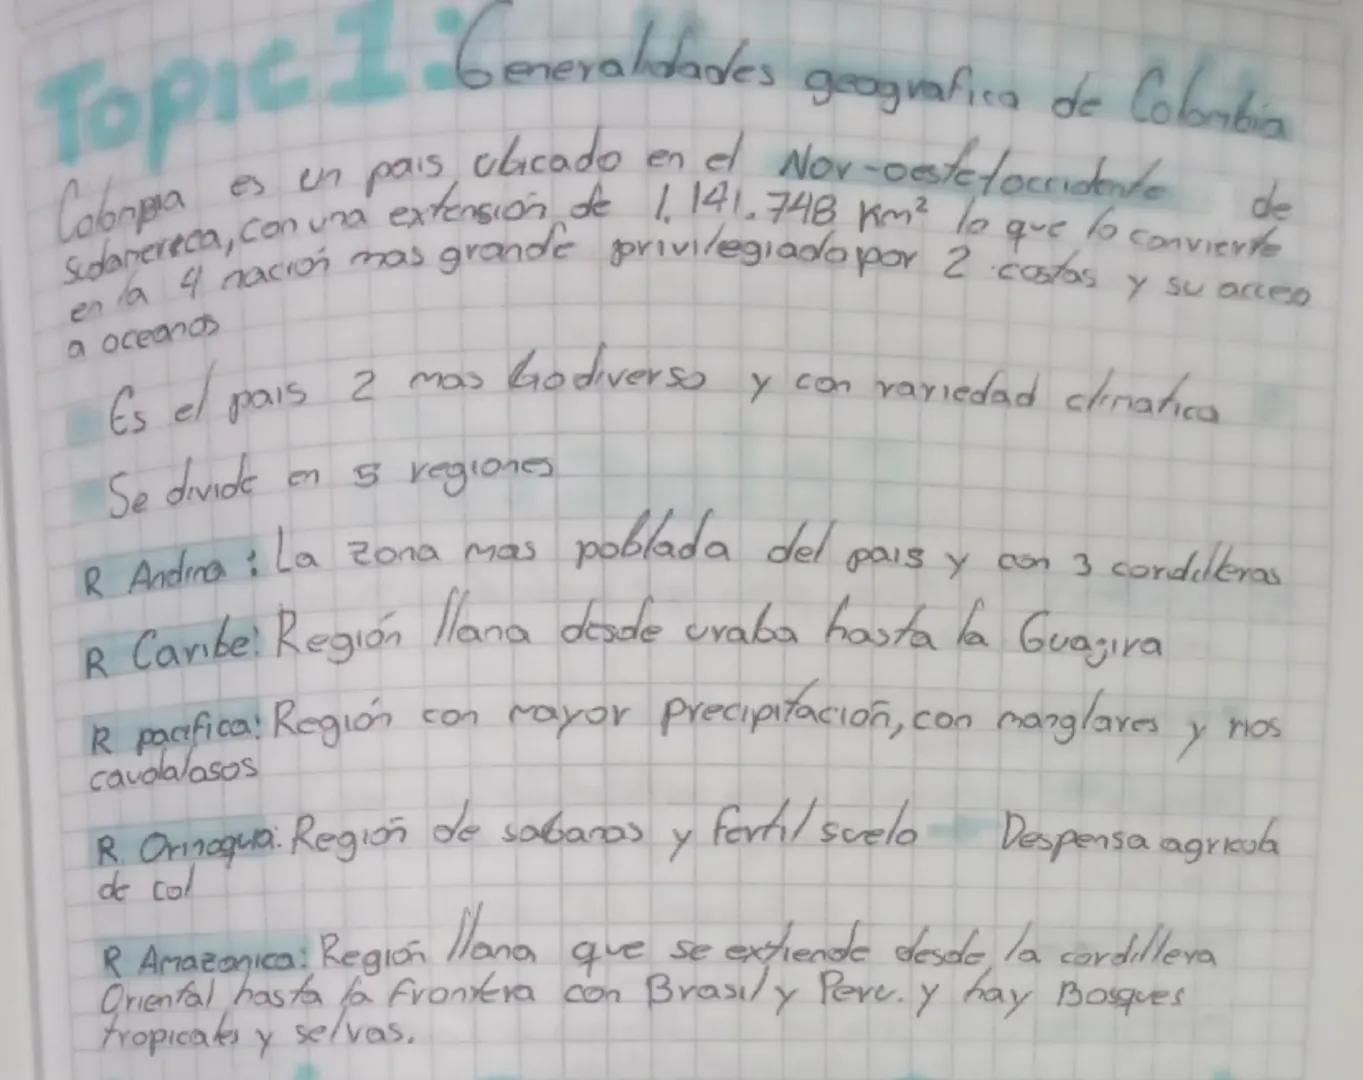 Topic 1: Generalidades geografica de Colombia
Colombia es un pais ubicado en el Nor-oeste/occidente de
sudamereca, con una extensión de 1.141.748 Km² lo que lo convierte
en la 4 nación mas grande privilegiado por 2 costas y su acceso
a oceanos
Es el pais 2 mas biodiverso y con variedad climatica
Se divide en 5 regiones
R Andina: La zona mas poblada del pais y con 3 cordilleras
R Caribe: Región llana desde uraba hasta la Guagira
R pacifica: Región con mayor precipitación, con manglares y rios
caudalasos
R. Orinoquia: Región de sabanas y fertil suelo Despensa agricola
de col
R Amazonica: Región llana que se extiende desde la cordillera
Oriental hasta la frontera con Brasil y Peru. y hay Bosques
tropicales y selvas.